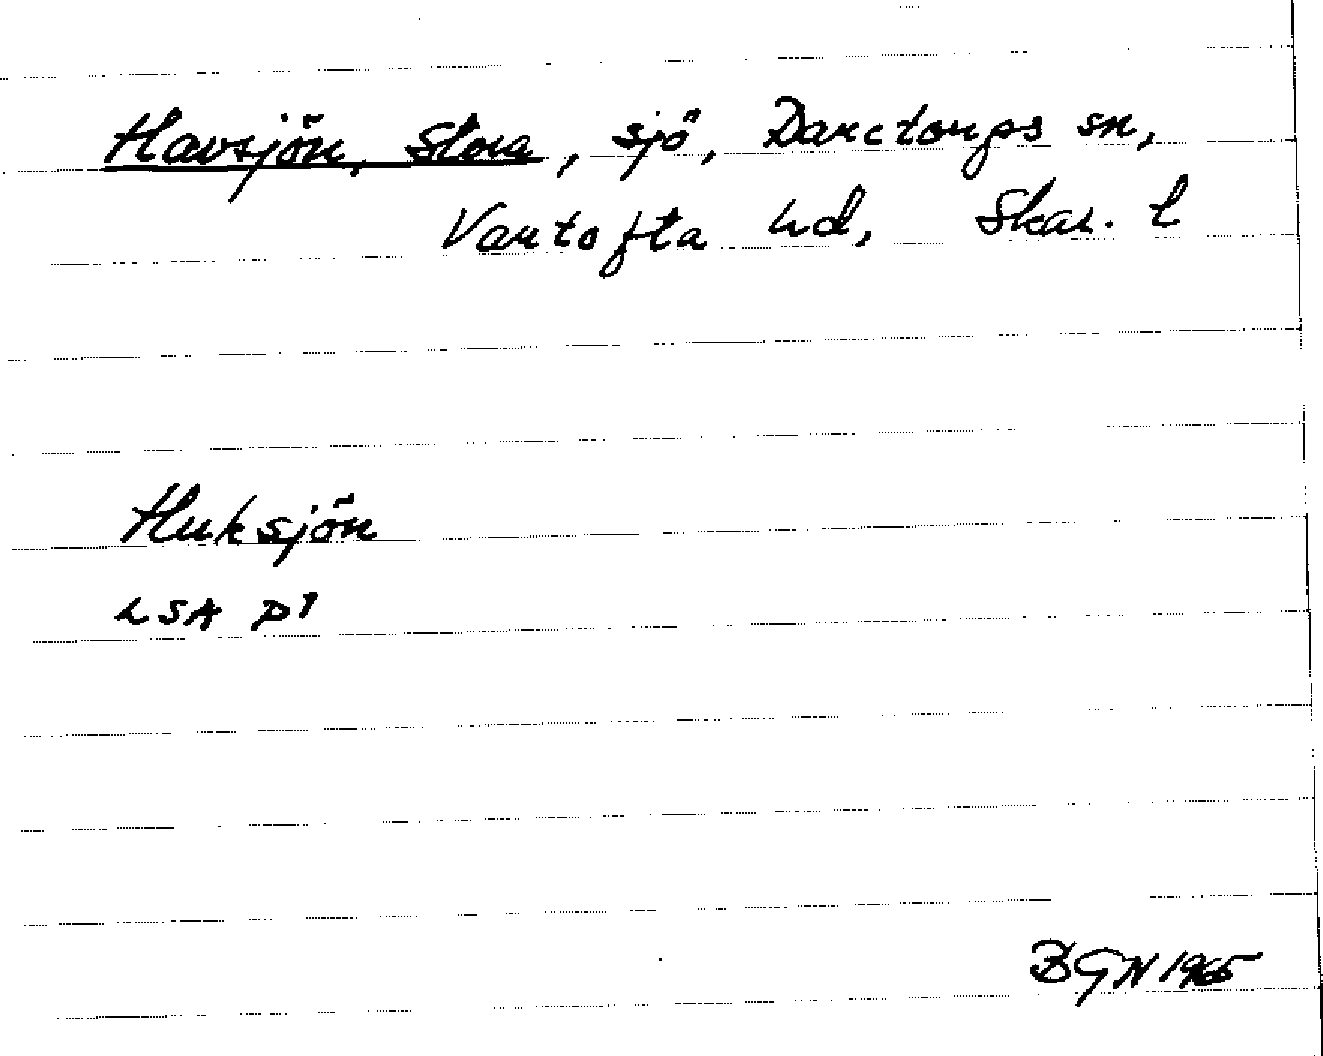 Havsjön, Stora, sjö, Daretorps sn,
Vartofta hd, Skar. l
Huksjön
LSA P1
BGN 1965